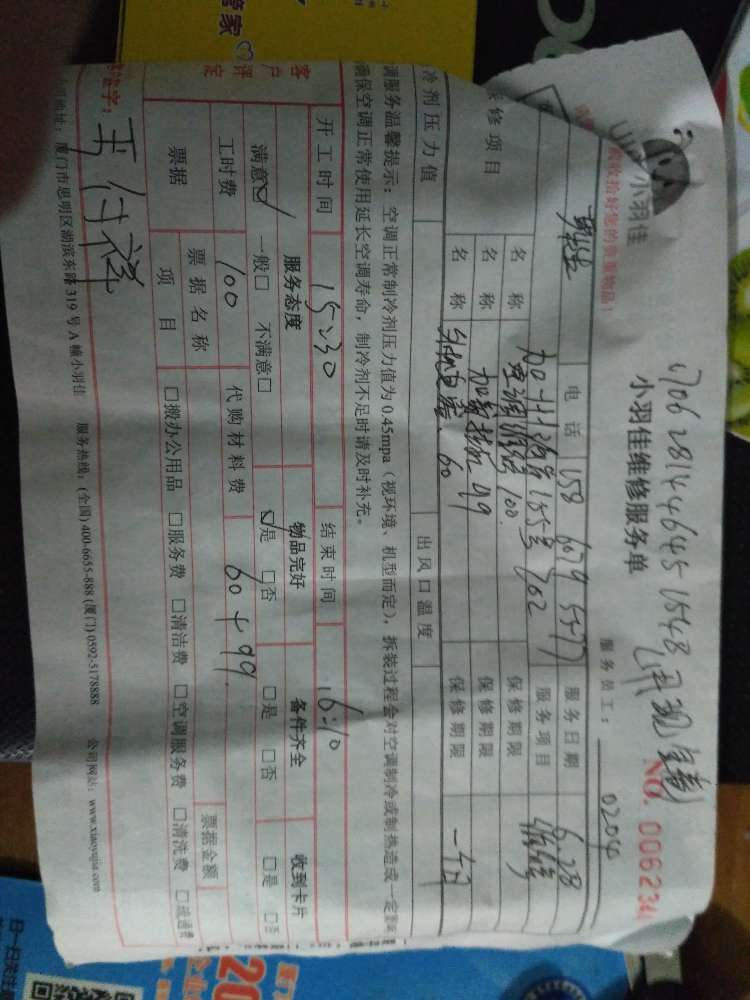 管家
1706281444645-1548
收拾好您的贵重物品!
小羽佳
小羽佳维修服务单
服务员工: 0204
NO. 006234
电话 158 6079 5377 服务日期 6.28
155号 702 服务项目 维修
维修项目
名称 空调维修 100. 保修期限
名称 加氟 99 保修期限
名称 60 保修期限 一个月
冷剂压力值 出风口温度
调服务温馨提示: 空调正常制冷剂压力值为 0.45mpa (视环境、机型而定), 拆装过程会对空调制冷或制热造成一定
确保空调正常使用延长空调寿命, 制冷剂不足时请及时补充。
开工时间 15:30 结束时间 16:10
客户评定
服务态度 物品完好 备件齐全 收到卡片
满意☑ 一般□ 不满意□ ☑是 □否 □是 □否 □是 □否
工时费 100 代购材料费 60+99.
票据 票据名称 票据金额
项目 □搬办公用品 □服务费 □清洁费 □空调服务费 □清洗费 □疏通费
签字:
地址: 厦门市思明区湖滨东路 319 号 A 幢小羽佳 服务热线: (全国) 400-6655-888 (厦门) 0592-5178888 公司网站: www.xiaoyujia.com
扫一扫关注
20